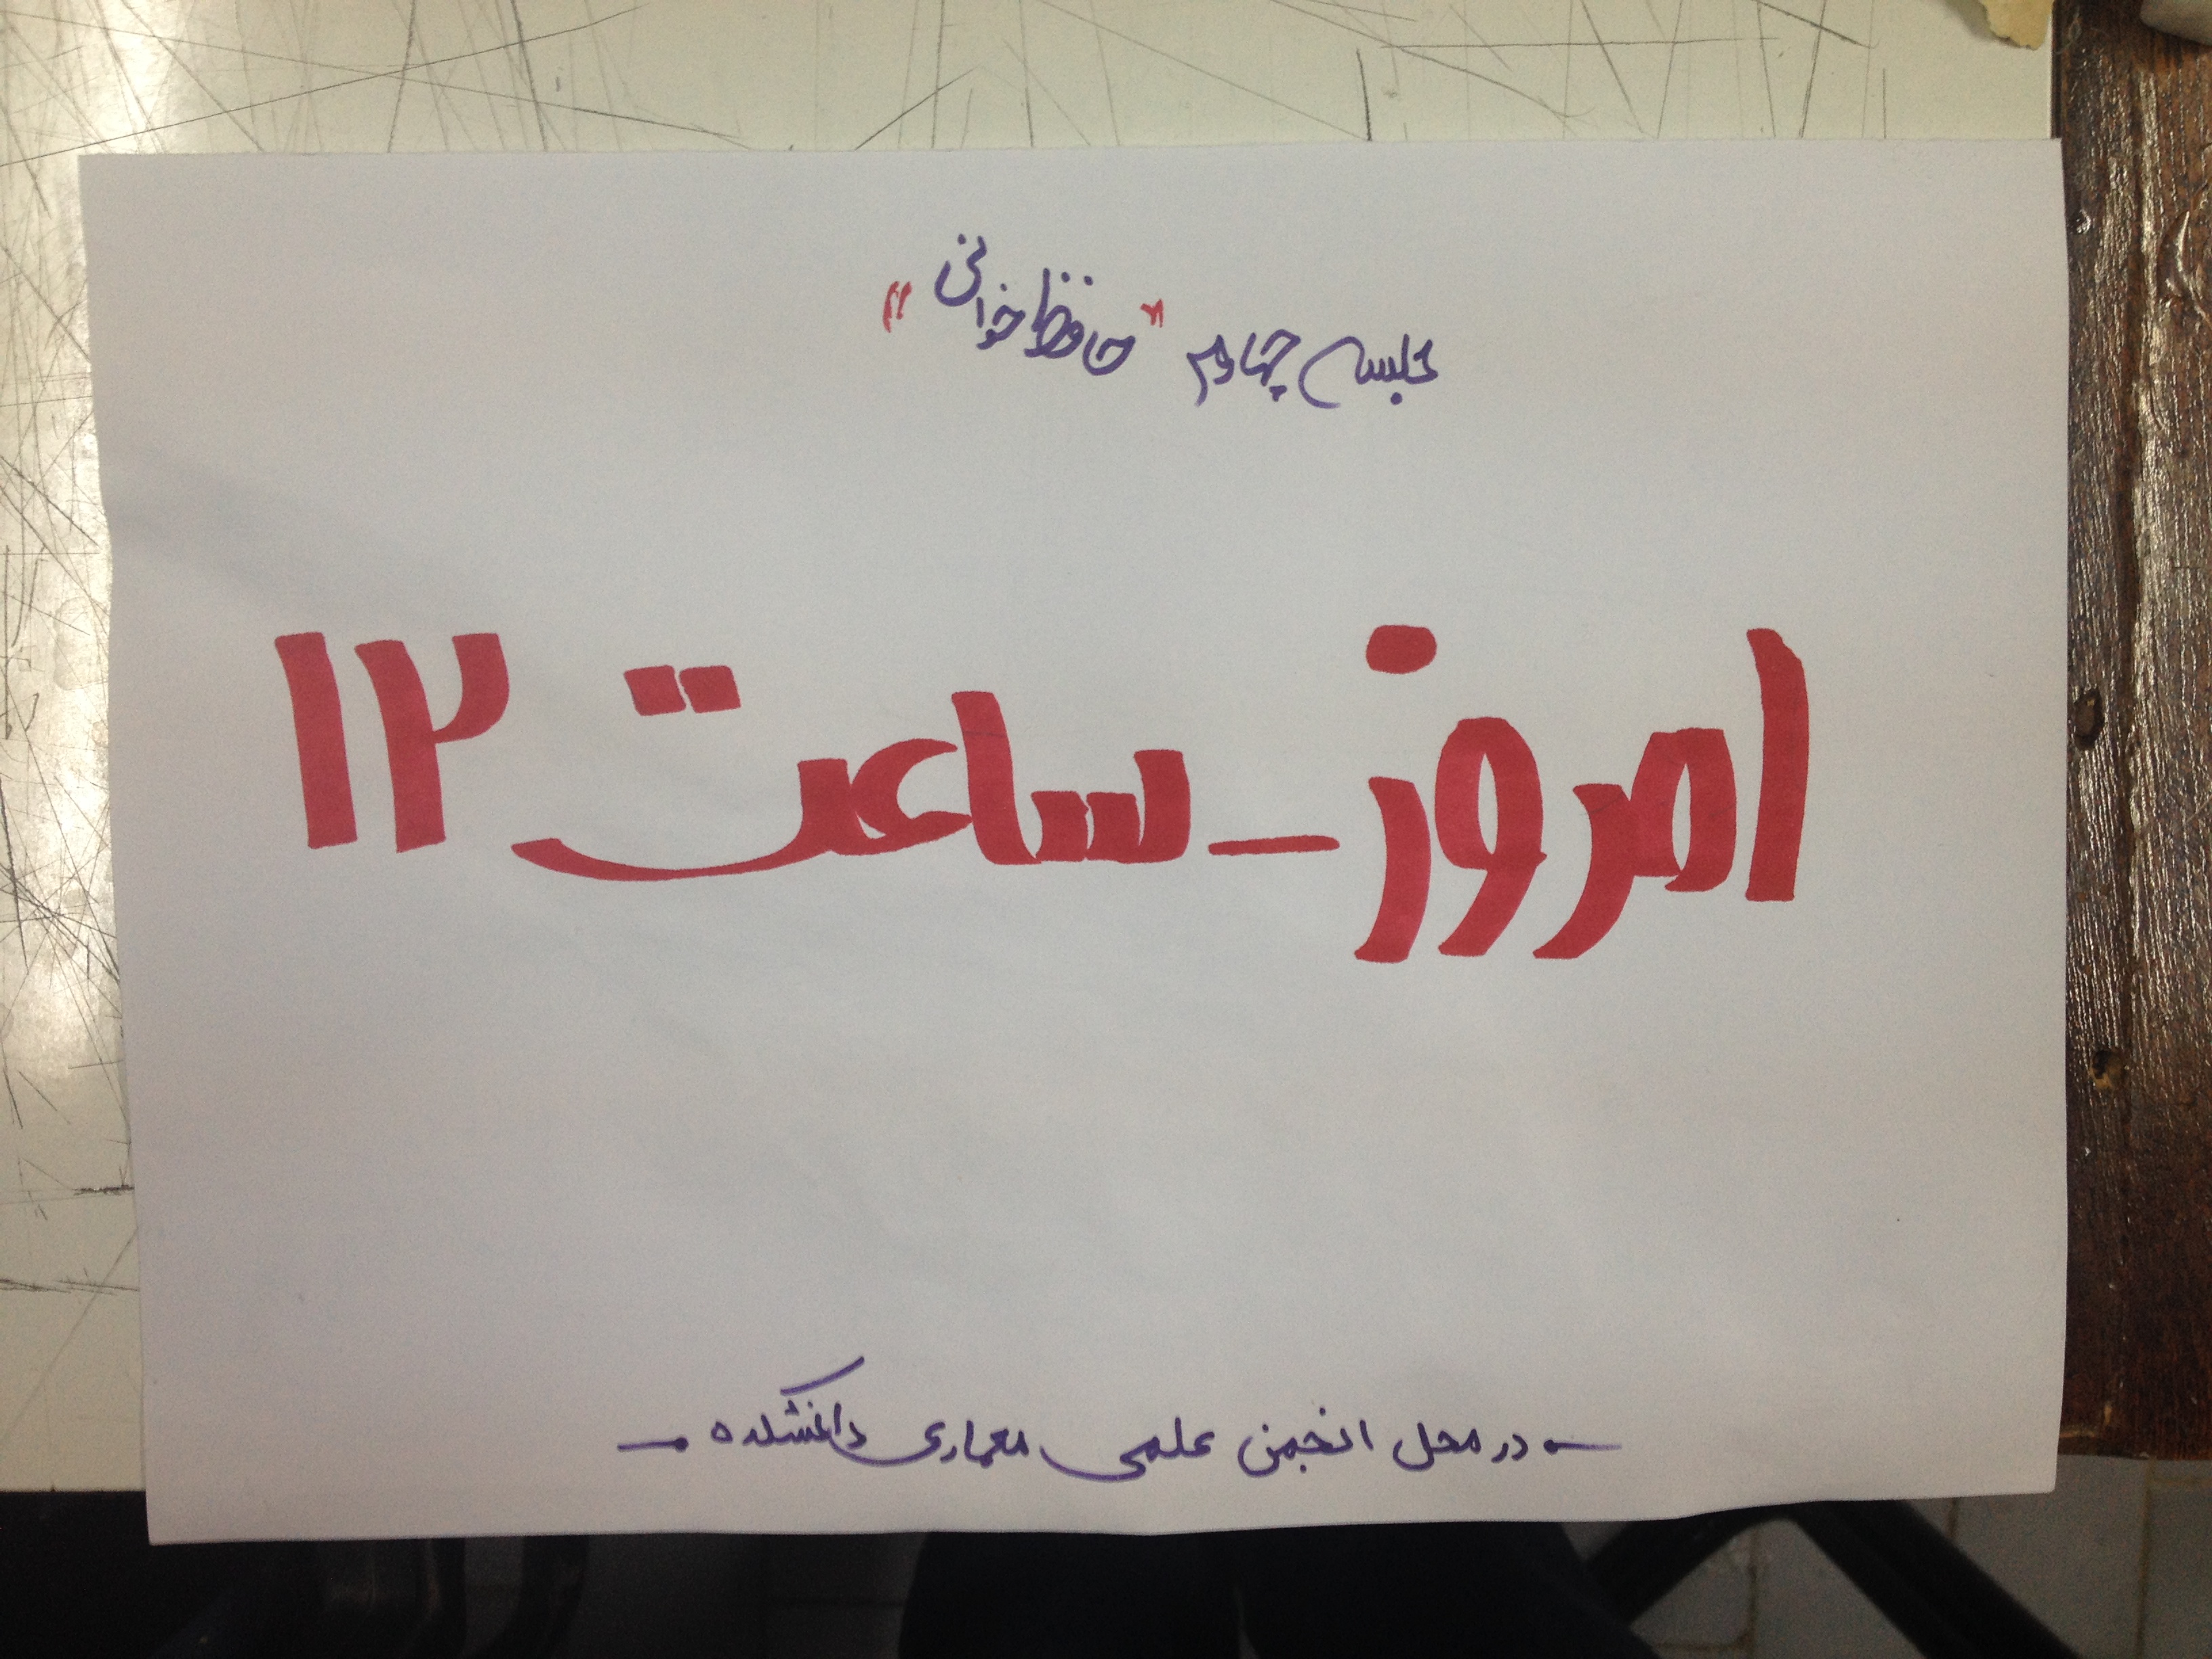 جلسه چهارم "حافظ خوانی"
امروز_ساعت ۱۲
در محل انجمن علمی معماری دانشکده